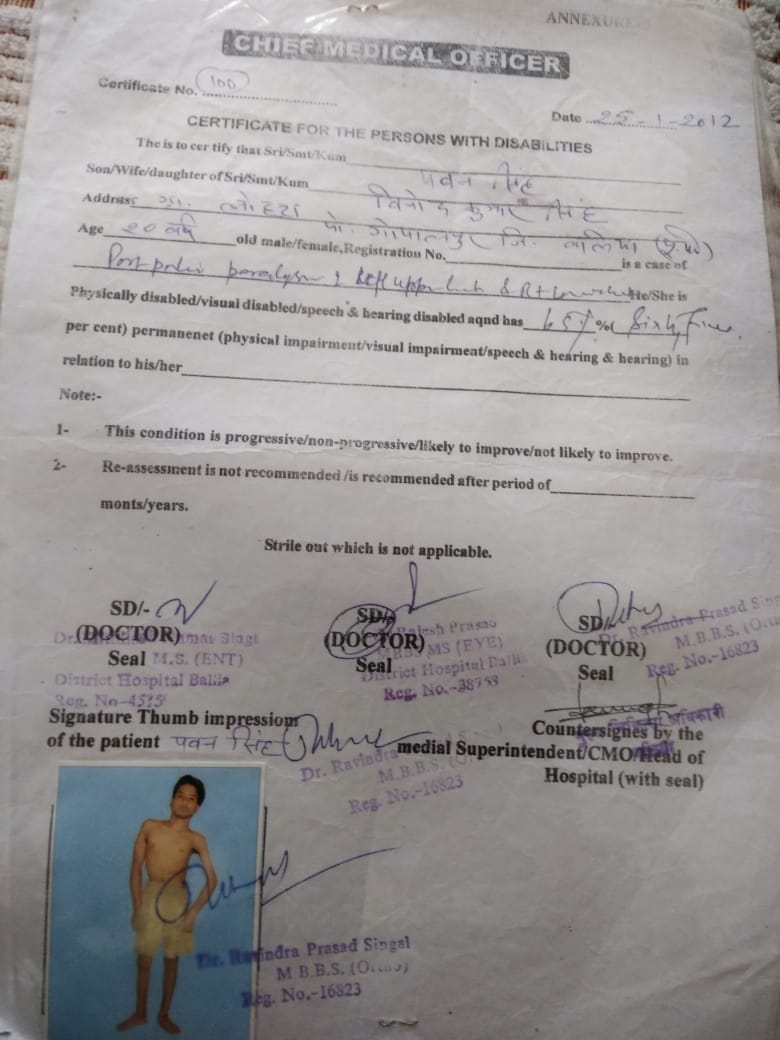 ANNEXURE
CHIEF MEDICAL OFFICER
Certificate No. 100
Date 25-1-2012
CERTIFICATE FOR THE PERSONS WITH DISABILITIES
The is to cer tify that Sri/Smt/Kum पवन सिंह
Son/Wife/daughter of Sri/Smt/Kum विनोद कुमार सिंह
Address ग्रा. पो. गोपालपुर जि. बलिया (यू.पी)
Age 20 वर्ष old male/female,Registration No. is a case of
Post polio paralysis Left upper limb & Rt lower He/She is
Physically disabled/visual disabled/speech & hearing disabled aqnd has 65% %( Sixty Five
per cent) permanenet (physical impairment/visual impairment/speech & hearing & hearing) in
relation to his/her
Note:-
1- This condition is progressive/non-progressive/likely to improve/not likely to improve.
2- Re-assessment is not recommended /is recommended after period of
monts/years.
Strile out which is not applicable.
SD/-
(DOCTOR)
Seal M.S. (ENT)
District Hospital Ballia
Reg. No-4515
SD/-
(DOCTOR) Prasad
MS (EYE)
Seal District Hospital Ballia
Reg. No.-38753
SD/-
Dr. Ravindra Prasad Sing
(DOCTOR) M.B.B.S. (Ortho
Seal Reg. No.-16823
Signature Thumb impression
of the patient पवन सिंह
Dr. Ravindra
M.B.B.S.
Reg. No.-16823
चिकित्सा अधिकारी
Countersignes by the
medial Superintendent/CMO/Head of
Hospital (with seal)
Dr. Ravindra Prasad Singal
M B.B.S. (Ortho)
Reg. No.-16823